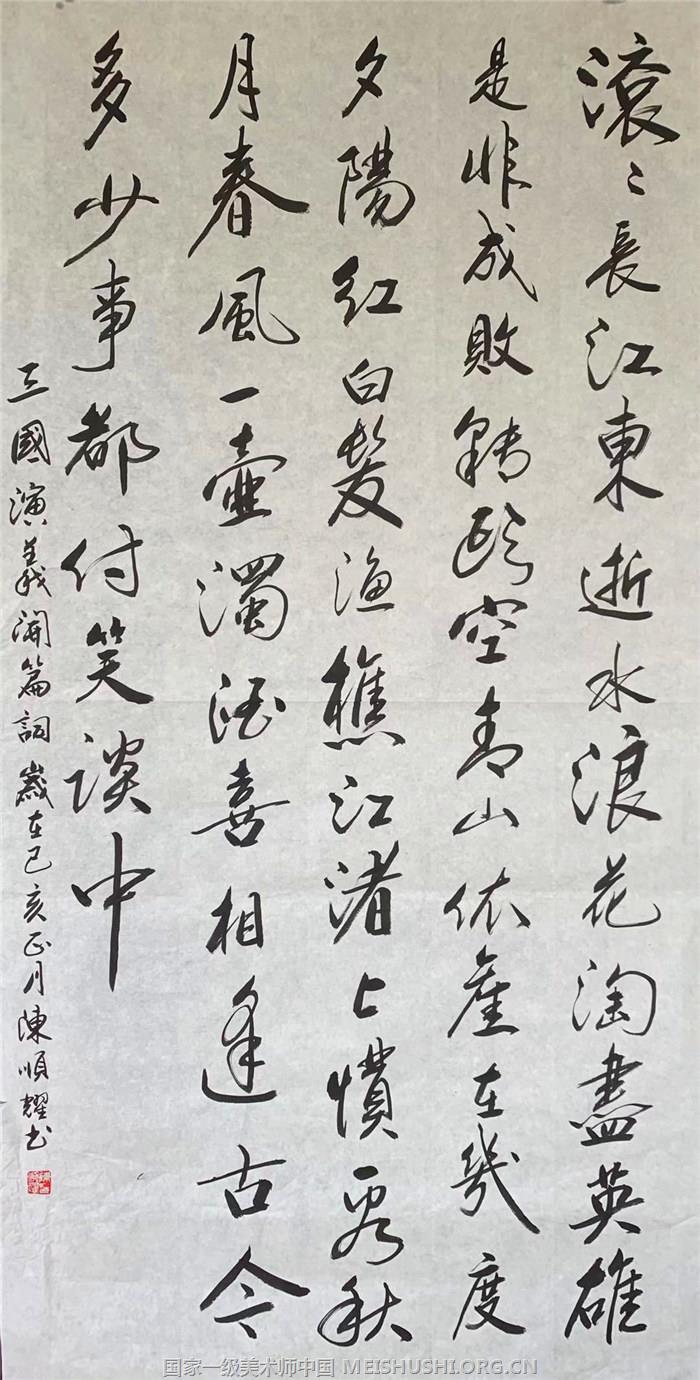 滚〻長江東逝水浪花淘盡英雄
是非成敗轉頭空青山依舊在幾度
夕陽紅白髮漁樵江渚上慣看秋
月春風一壺濁酒喜相逢古今
多少事都付笑談中
三國演義開篇詞歲在己亥正月陳順耀书
国家一级美术师中国 MEISHUSHI.ORG.CN